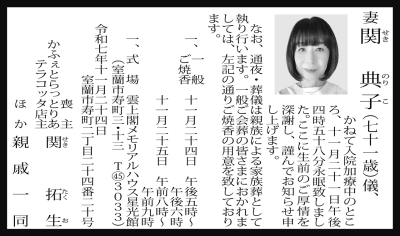 妻 関 典子(七十一歳)儀、
せき
のりこ
かねて入院加療中のとこ
ろ、十一月二十一日午後
四時五十八分永眠致しまし
た。ここに生前のご厚情を
深謝し、謹んでお知らせ申
し上げます。
なお、通夜・葬儀は親族による家族葬として
執り行います。一般ご会葬の皆さまにおかれま
しては、左記の通りご焼香の用意を致しており
ます。
一、一般
ご焼香
十一月二十四日 午後五時〜
午後六時
十一月二十五日 午前八時〜
午前九時
一、式場 雲上閣メモリアルハウス星光館
(室蘭市寿町三・十三 T㊺3033)
令和七年十一月二十四日
室蘭市寿町二丁目二十四番二十号
喪主 関 拓生
せき
たくお
かふぇとらっとりあ
テラコッタ店主
ほか 親戚一同